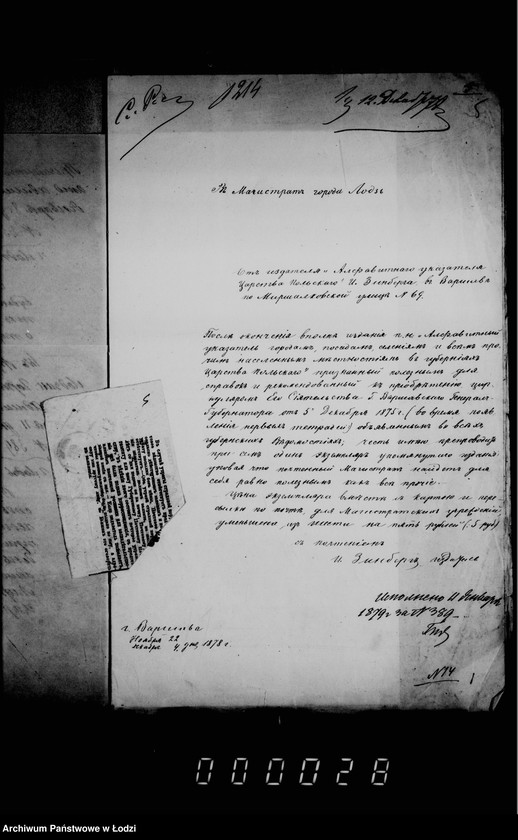 1214
12 Декабр
5
Въ Магистратъ города Лодзь
Отъ издателя "Алфавитнаго указателя
Царства Польскаго" И. Зинберга въ Варшавѣ
по Маршалковской улицѣ № 69.
Послѣ окончанія вполнѣ изданія п. н. "Алфавитный
указатель городамъ, посадамъ, селеніямъ и всѣмъ про-
чимъ населеннымъ мѣстностямъ въ губерніяхъ
Царства Польскаго" признанный полезнымъ для
справокъ и рекомендованный къ пріобрѣтенію цир-
куляромъ его Сіятельства Г. Варшавскаго Генералъ-
Губернатора отъ 5 Декабря 1875 г. (во время появ-
ленія первыхъ тетрадей) объявленнымъ во всѣхъ
губернскихъ Вѣдомостяхъ, честь имѣю препроводить
при семъ одинъ экземпляръ упомянутаго изданія
уповая что почтенный Магистратъ найдетъ для
себя равно полезнымъ какъ всѣ прочіе.
Цѣна экземпляра вмѣстѣ съ картою и пере-
сылки по почтѣ, для Магистратскихъ учрежденій,
уменьшена изъ шести на пять рублей (5 руб)
съ почтеніемъ
И. Зинбергъ
Исполнено 11 Января
1879 г за № 389
г. Варшава
Ноября 22
Декабря 4 дня 1878 г.
№ 14
000028
Archiwum Państwowe w Łodzi